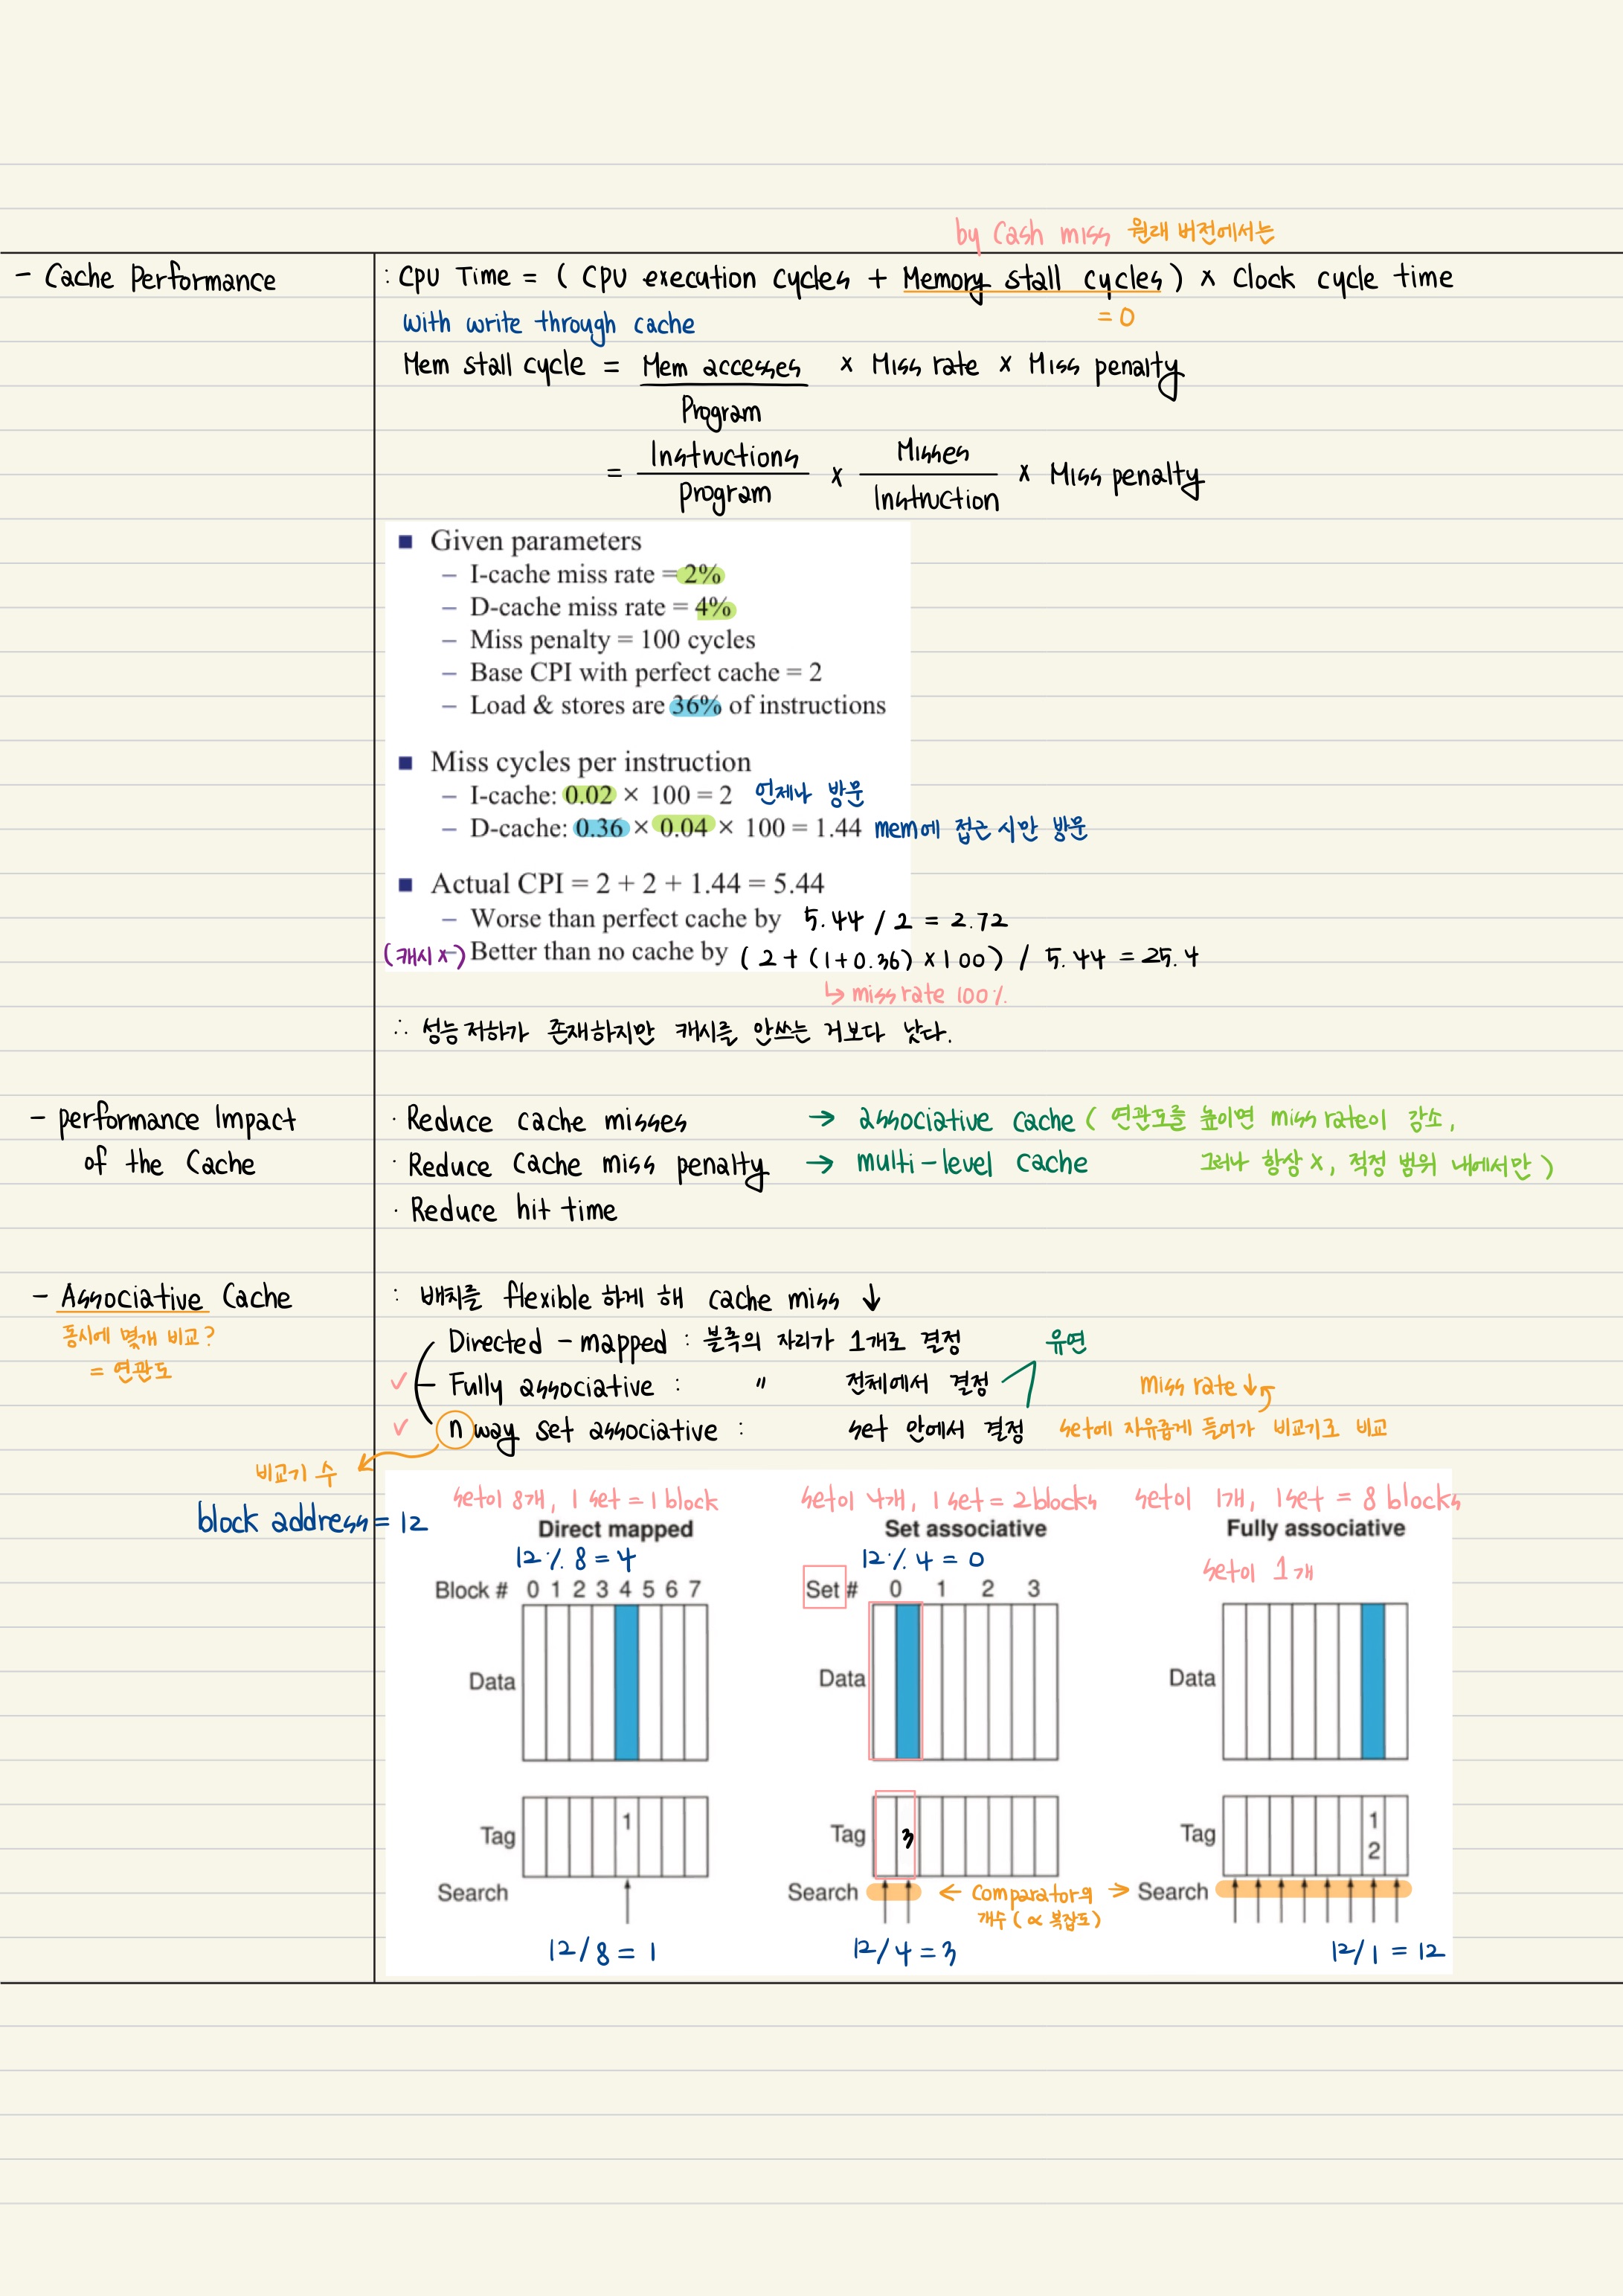 by Cash miss 원래 버전에서는
- Cache Performance : CPU Time = ( CPU execution cycles + Memory stall cycles ) × Clock cycle time
With write through cache = 0
Mem stall cycle = Mem accesses / Program × Miss rate × Miss penalty
= Instructions / Program × Misses / Instruction × Miss penalty
■ Given parameters
– I-cache miss rate = 2%
– D-cache miss rate = 4%
– Miss penalty = 100 cycles
– Base CPI with perfect cache = 2
– Load & stores are 36% of instructions
■ Miss cycles per instruction
– I-cache: 0.02 × 100 = 2 언제나 방문
– D-cache: 0.36 × 0.04 × 100 = 1.44 mem에 접근 시만 방문
■ Actual CPI = 2 + 2 + 1.44 = 5.44
– Worse than perfect cache by 5.44 / 2 = 2.72
(캐시 x) – Better than no cache by ( 2 + (1+0.36) × 100 ) / 5.44 = 25.4
↳ miss rate 100%
∴ 성능 저하가 존재하지만 캐시를 안쓰는 거보다 낫다.
- performance Impact · Reduce cache misses → associative cache ( 연관도를 높이면 miss rate이 감소,
of the Cache · Reduce Cache miss penalty → multi-level cache 그러나 항상 X, 적정 범위 내에서만 )
· Reduce hit time
- Associative Cache : 배치를 flexible 하게 해 cache miss ↓
동시에 몇개 비교?
= 연관도
Directed - mapped : 블록의 자리가 1개로 결정 유연
✓ Fully associative : " 전체에서 결정 miss rate ↓
✓ n way set associative : set 안에서 결정 set에 자유롭게 들어가 비교기로 비교
비교기 수
block address = 12
set이 8개, 1 set = 1 block set이 4개, 1 set = 2 blocks set이 1개, 1set = 8 blocks
Direct mapped Set associative Fully associative
12 % 8 = 4 12 % 4 = 0 set이 1개
Block # 0 1 2 3 4 5 6 7 Set # 0 1 2 3
Data Data Data
Tag 1 Tag 3 Tag 1
2
Search Search ← Comparator의 → Search
개수 ( ∝ 복잡도)
12/8 = 1 12/4 = 3 12/1 = 12